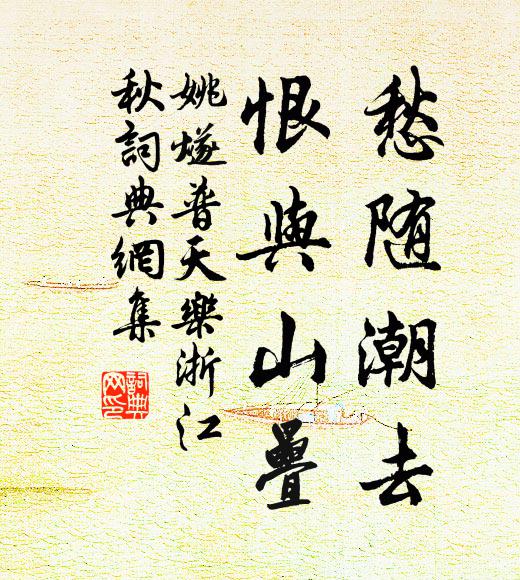 愁随潮去
恨與山疊
姚燧普天樂浙江
秋詞典網集
詞典
网印